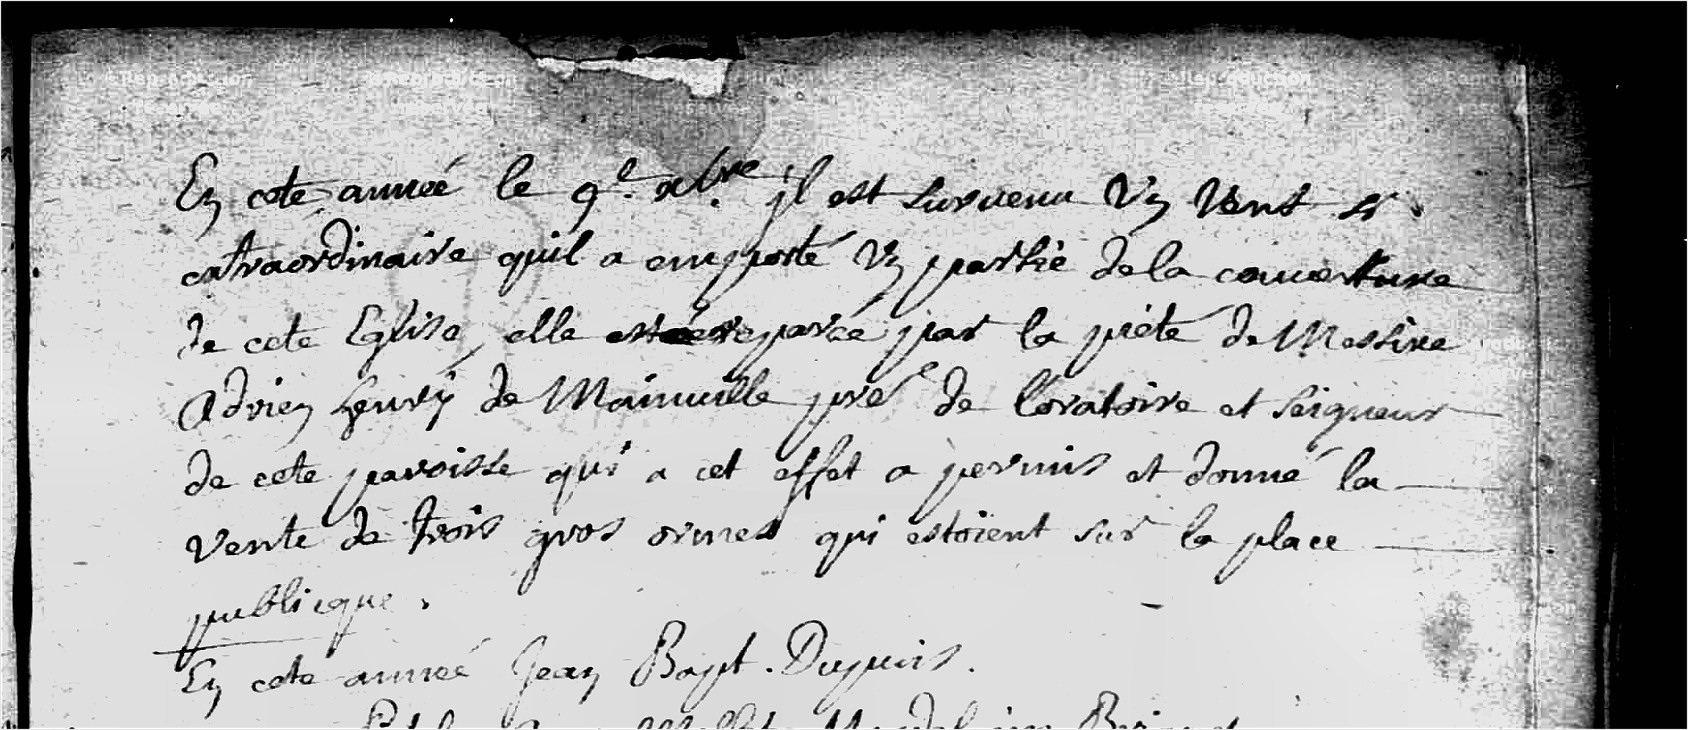 En cete année le 9e. xbre. il est survenu Vn Vent si
extraordinaire quil a emporté Vn partie de la couverture
de cete Eglise, elle reparée par la piété de Messire
Adrien henrÿ de Mainuille pre de l'oratoire et Seigneur
de cete paroisse qui a cet effet a permis et donné la
vente de trois gros ormes qui estoient sur la place
publicque.
En cete année Jean Bapt. Dupuis.